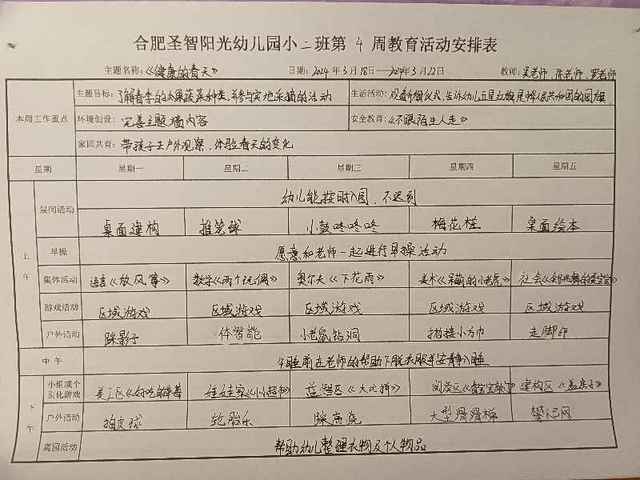 合肥圣智阳光幼儿园小二班第 4 周教育活动安排表
主题名称：《健康的春天》 日期：2024年3月18日—2024年3月22日 教师：吴老师 陈老师 罗老师
本周工作重点 主题目标：了解春季的水果蔬菜种类，并参与实地采摘的活动 生活活动：
环境创设：完善主题墙内容 安全教育：《不跟陌生人走》
家园共育：带孩子去户外观察，体验春天的变化
星期 星期一 星期二 星期三 星期四 星期五
上午 晨间活动 幼儿能按时入园，不迟到
桌面建构 推笼球 小鼓咚咚咚 梅花桩 桌面绘本
早操 愿意和老师一起进行早操活动
集体活动 语言《放风筝》 数学《两个玩偶》 奥尔夫《下花雨》 美术 社会
游戏活动 区域游戏 区域游戏 区域游戏 区域游戏 区域游戏
户外活动 踩影子 体智能 小老鼠钻洞 小方巾 走脚印
中午 午睡前在老师的帮助下脱衣服并安静入睡
下午 小组或个别化游戏 美工区 娃娃家 益智区《大比拼》 阅读区 建构区
户外活动 拍皮球 轮胎乐 踩高跷 大型滑滑梯 攀爬网
离园活动 帮助幼儿整理衣物及个人物品